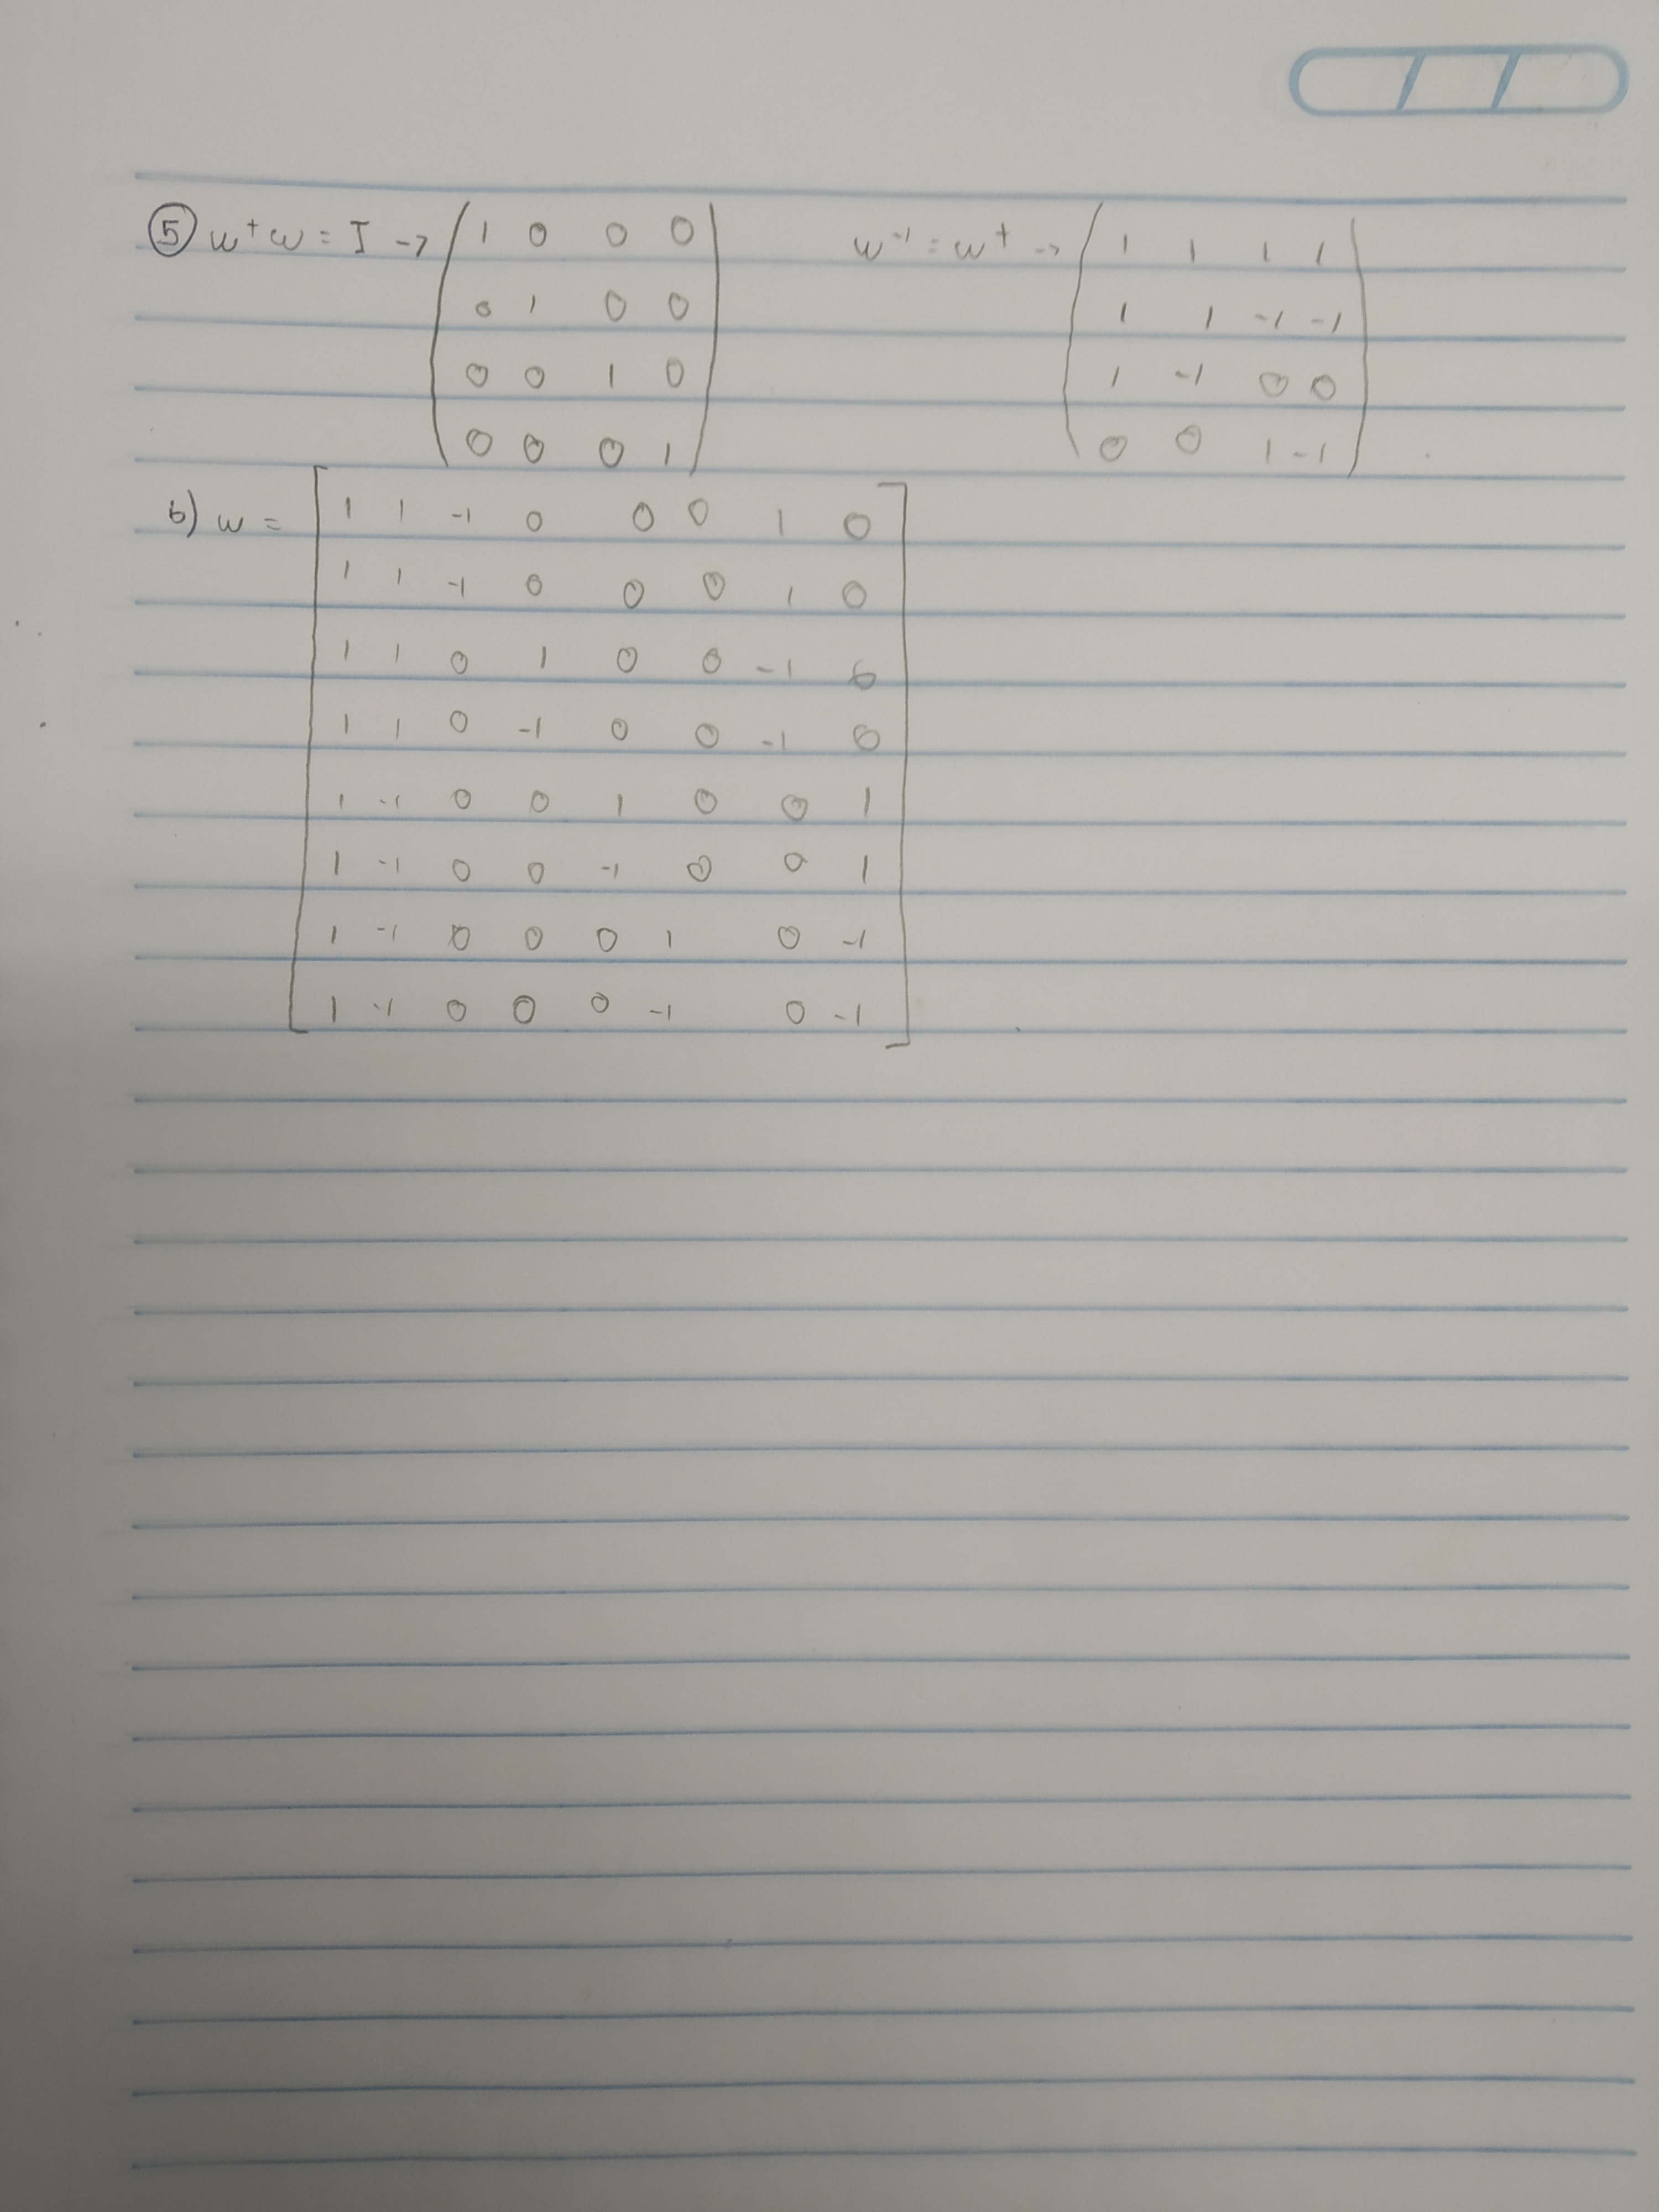 ⑤ w⁺w = I → ( 1 0 0 0    w⁻¹ = w⁺ → ( 1 1 1 1
0 1 0 0    1 1 -1 -1
0 0 1 0    1 -1 0 0
0 0 0 1 )    0 0 1 -1 )
6) w = [ 1 1 -1 0 0 0 1 0
1 1 -1 0 0 0 1 0
1 1 0 1 0 0 -1 0
1 1 0 -1 0 0 -1 0
1 -1 0 0 1 0 0 1
1 -1 0 0 -1 0 0 1
1 -1 0 0 0 1 0 -1
1 -1 0 0 0 -1 0 -1 ]